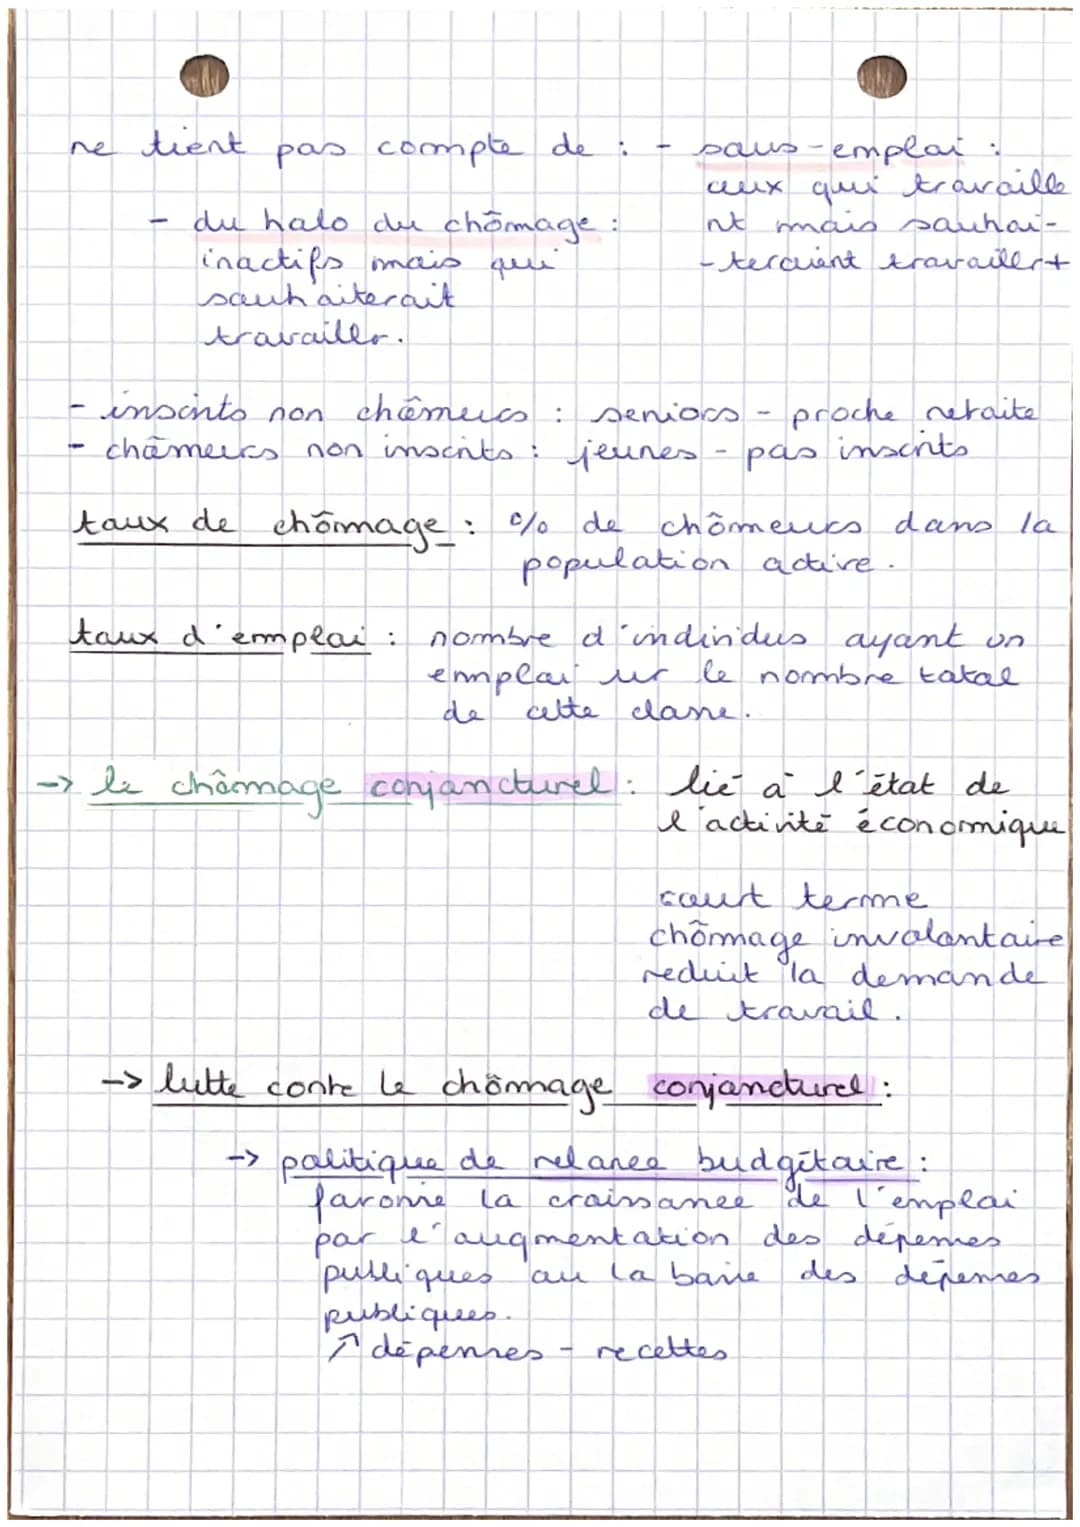 ne tient pas compte de : - sous-emploi :
ceux qui travaille
nt mais souhai-
-teraient travailler +
- du halo du chômage :
inactifs mais qui
souhaiterait
travailler.
- inscrits non chômeurs : seniors - proche retraite
- chômeurs non inscrits : jeunes - pas inscrits
taux de chômage : % de chômeurs dans la
population active.
taux d'emploi : nombre d'individus ayant un
emploi sur le nombre total
de cette classe.
-> le chômage conjoncturel : lié à l'état de
l'activité économique
court terme
chômage involontaire
reduit la demande
de travail.
-> lutte contre le chômage conjoncturel :
-> politique de relance budgétaire :
favorise la croissance de l'emploi
par l'augmentation des dépenses
publiques ou la baisse des dépenses
publiques.
↗ dépenses - recettes